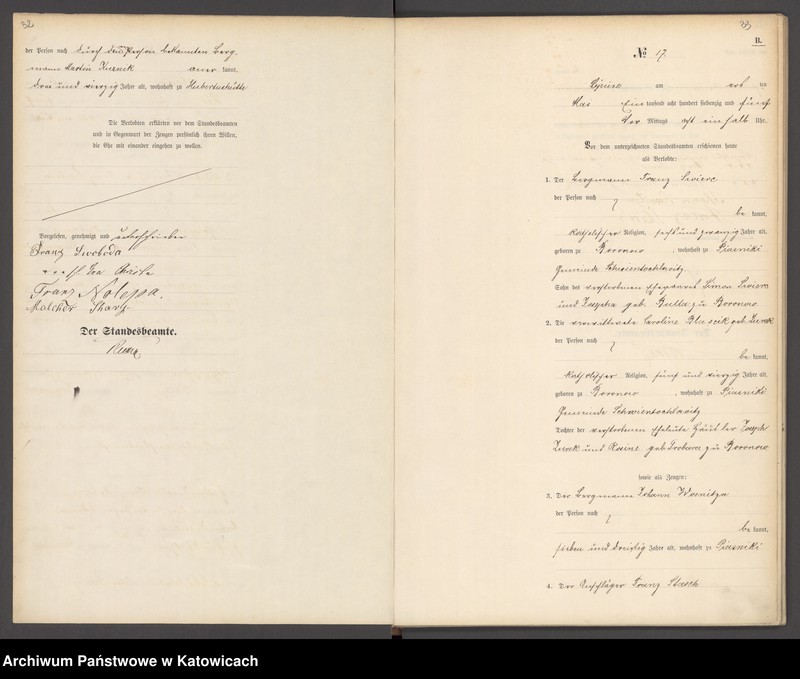 32
der Person nach durch den Person bekannten Berg-
mann Martin Kuznik aner kannt,
drei und vierzig Jahre alt, wohnhaft zu Hubertushütte
Die Verlobten erklärten vor dem Standesbeamten
und in Gegenwart der Zeugen persönlich ihren Willen,
die Ehe mit einander eingehen zu wollen.
Vorgelesen, genehmigt und unterschrieben
Franz Swoboda
Franz Nolepa.
Melcher
Der Standesbeamte.
33
B.
№ 17.
Lipine am
Mai Ein tausend acht hundert siebenzig und fünf
Vor Mittags acht ein halb Uhr.
Vor dem unterzeichneten Standesbeamten erschienen heute
als Verlobte:
1. Der Bergmann Franz
der Person nach
be kannt,
katholischer Religion, sechs und zwanzig Jahre alt,
geboren zu Boronow, wohnhaft zu Piasniki
Gemeinde Schwientochlowitz,
Sohn des verstorbenen Ehepaares Simon
und Josepha geb. Bulla zu Boronow
2. Die verwittwete Caroline geb. Zurek
der Person nach
be kannt,
katholischer Religion, fünf und vierzig Jahre alt,
geboren zu Boronow, wohnhaft zu Piasniki
Gemeinde Schwientochlowitz
Tochter der verstorbenen Eheleute Häusler Joseph
Zurek und Rosine geb. zu Boronow
sowie als Zeugen:
3. Der Bergmann Johann Woznitza
der Person nach
be kannt,
sieben und dreißig Jahre alt, wohnhaft zu Piasniki
4. Der Franz Stasch
Archiwum Państwowe w Katowicach